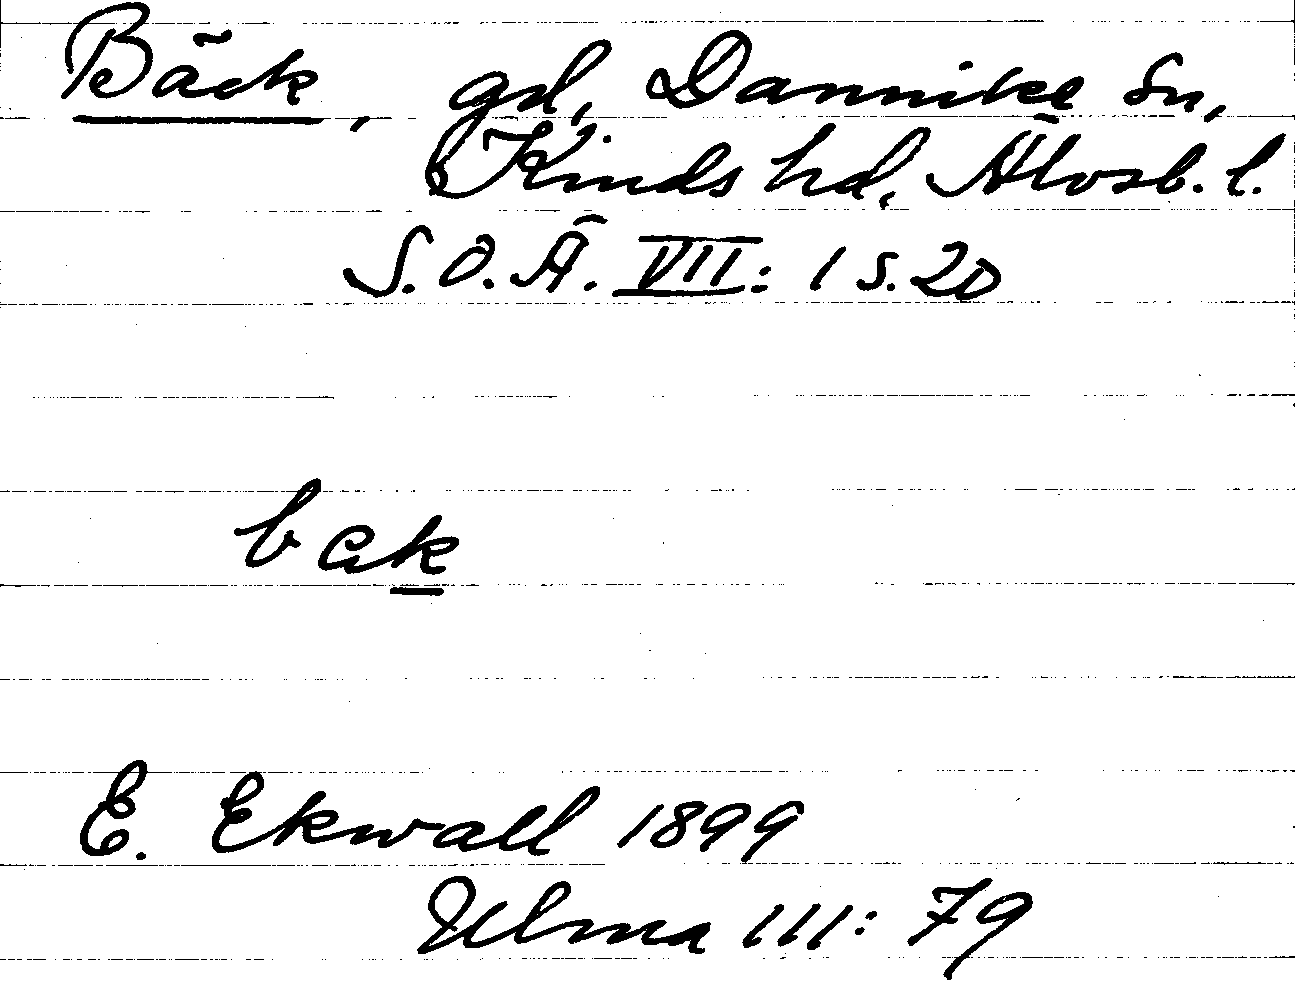 Bäck, gd, Dannike sn,
Kinds hd, Älvsb. l.
S.O.Ä. VII: 1 s. 20
bak
E. Ekwall 1899
Ulma III: 79